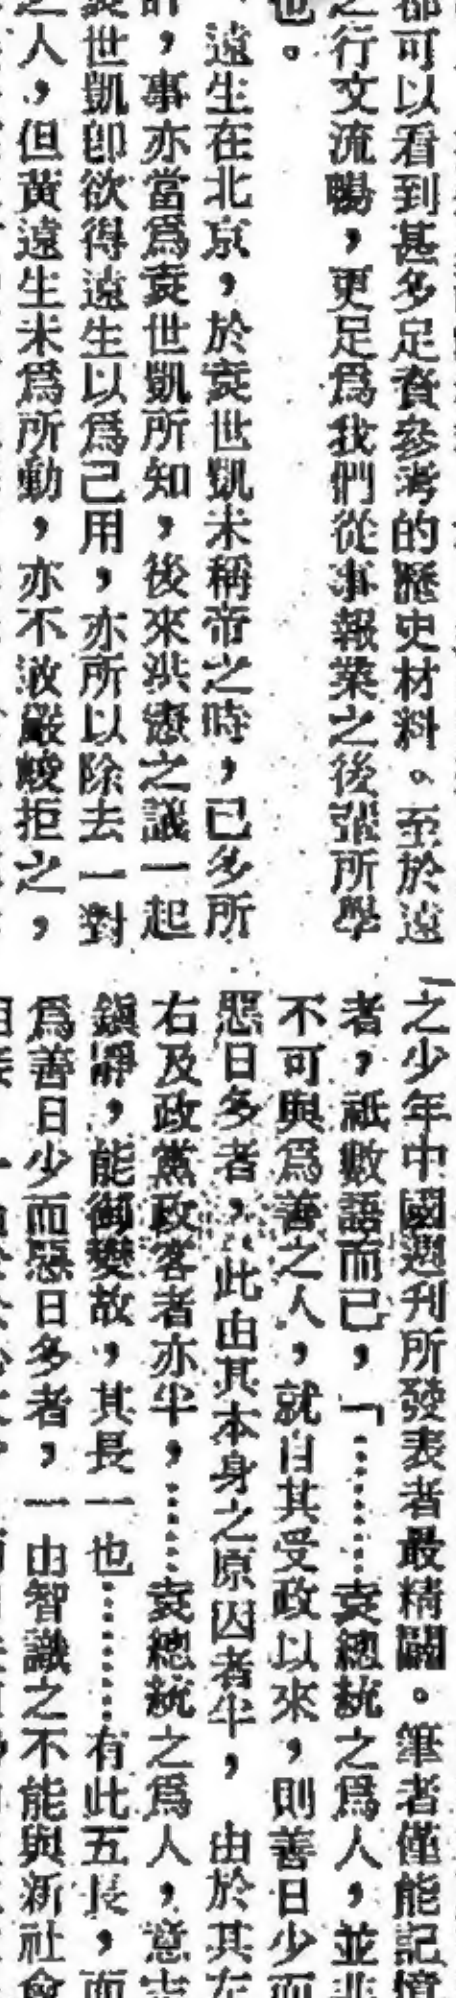 都可以看到甚多足資參考的歷史材料。至於遠
之行文流暢，更足為我們從事報業之後張所學
也。
遠生在北京，於袁世凱未稱帝之時，已多所
，事亦當為袁世凱所知，後來洪憲之議一起
世凱即欲得遠生以為己用，亦所以除去一對
之人，但黃遠生未為所動，亦不敢嚴峻拒之，
之少年中國週刊所發表者最精闢。筆者僅能記憶
者，祇數語而已，「……袁總統之為人，並非
不可與為善之人，就自其受政以來，則善日少而
惡日多者，此由其本身之原因者半，由於其左
右及政黨政客者亦半，……袁總統之為人，意志
鎮靜，能御變故，其長一也……有此五長，而
為善日少而惡日多者，一由智識之不能與新社會